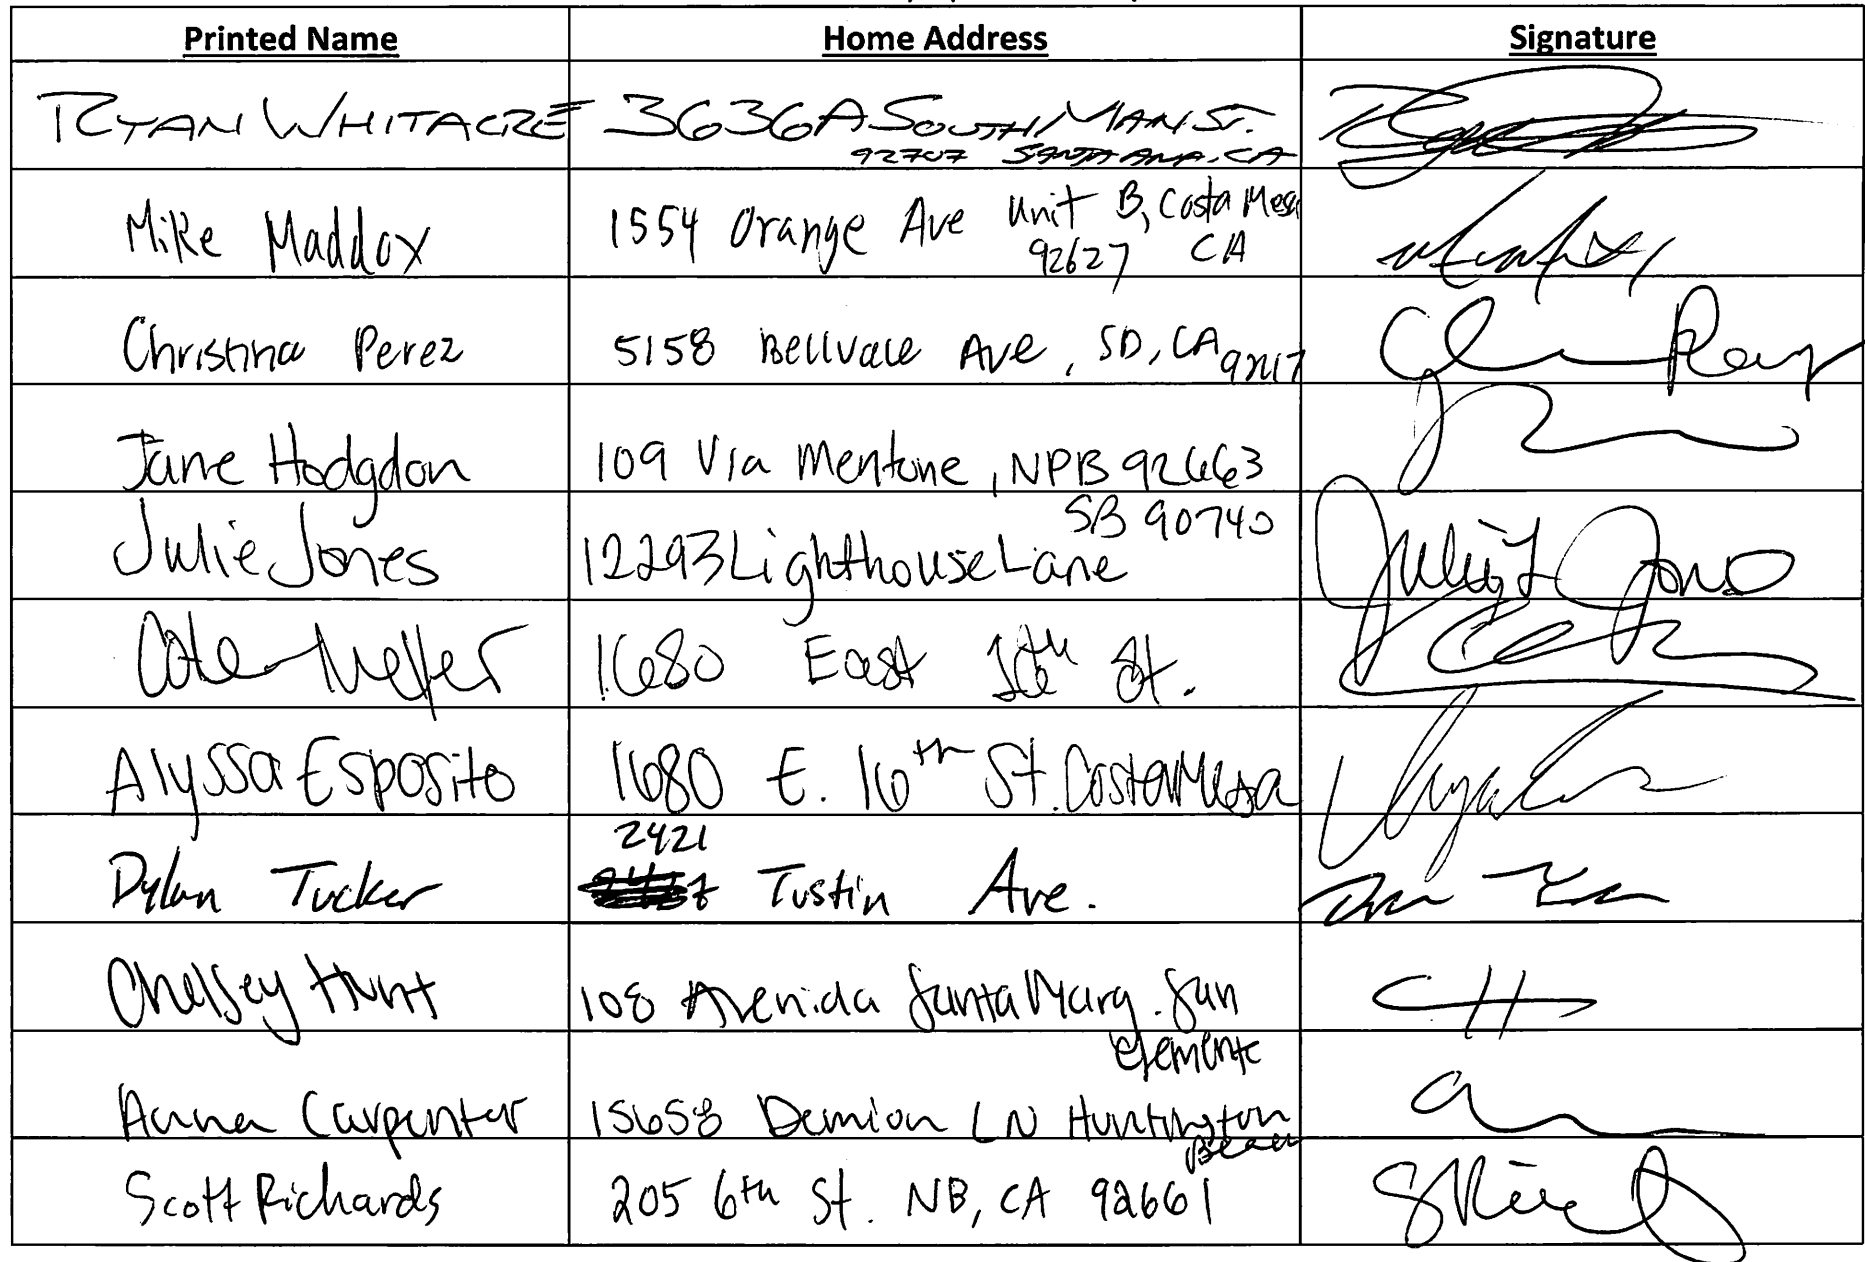 Printed Name Home Address Signature
RYAN WHITACRE 3636A SOUTH MAIN ST.
92707 SANTA ANA, CA
Mike Maddox 1554 Orange Ave Unit B, Costa Mesa
92627 CA
Christina Perez 5158 Bellvale Ave, SD, CA 92117
Jane Hodgdon 109 Via Mentone, NPB 92663
SB 90740
Julie Jones 12293 Lighthouse Lane Julie L Jones
1680 East 16th St.
Alyssa Esposito 1680 E. 16th St. Costa Mesa
2421
Dylan Tucker Tustin Ave.
Chelsey Hunt 108 Avenida Santa Marg. San
Clemente
Anna Carpenter 15658 Demion LN Huntington
Beach
Scott Richards 205 6th St. NB, CA 92661